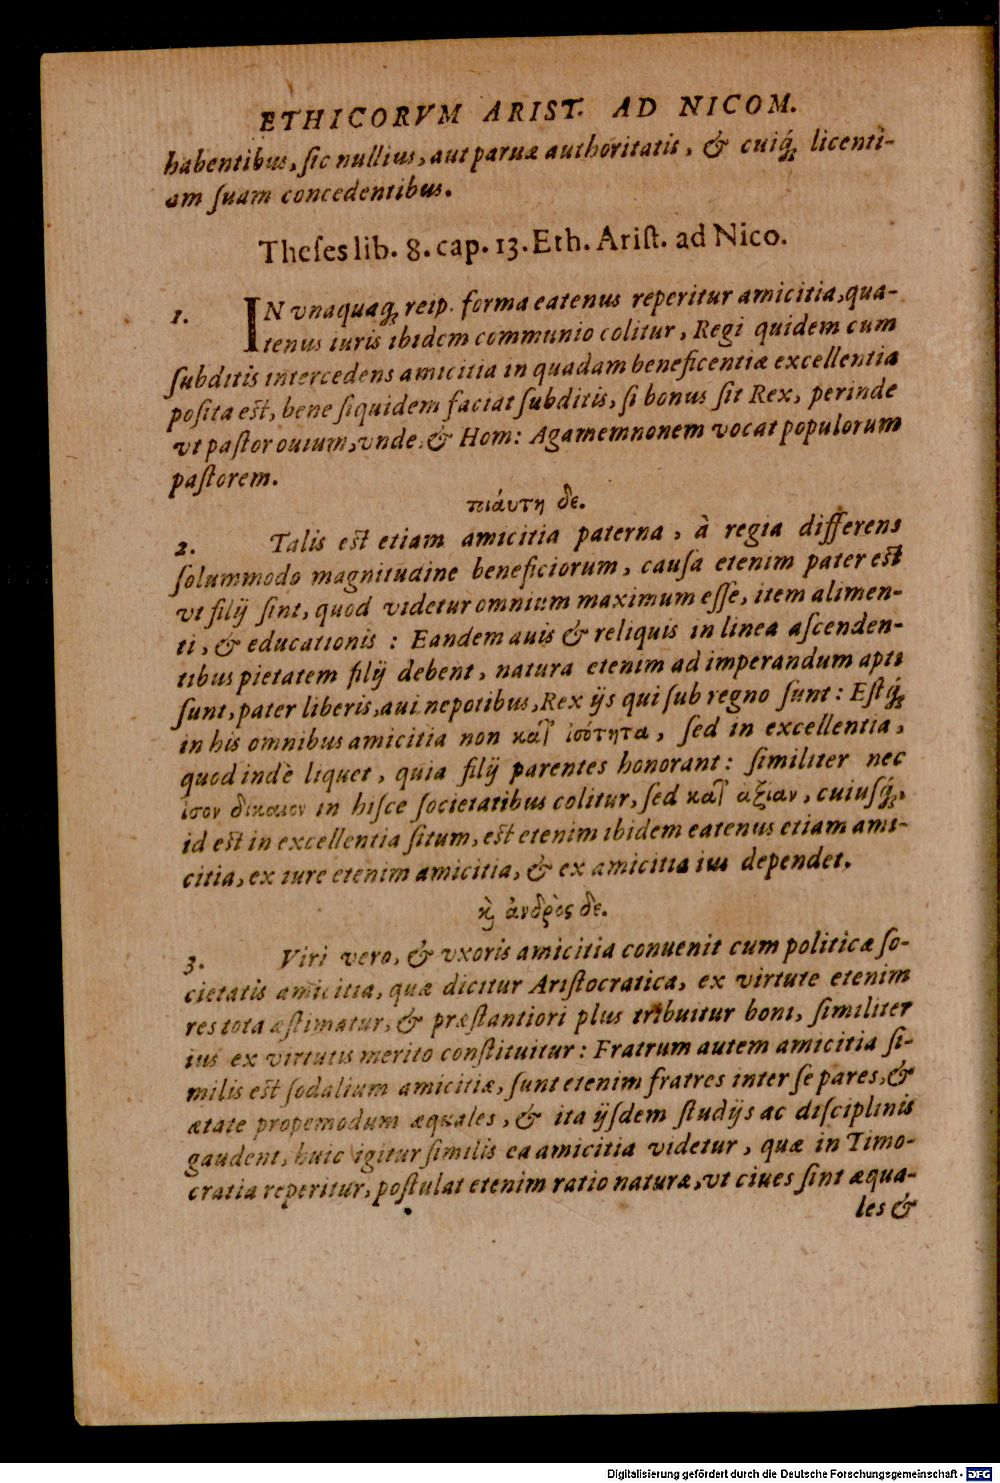 ETHICORVM ARIST. AD NICOM.
habentibus, ſic nullius, aut paruæ authoritatis, & cuiq́; licenti-
am ſuam concedentibus.
Theſes lib. 8. cap. 13. Eth. Ariſt. ad Nico.
1. IN vnaquaq; reip. forma eatenus reperitur amicitia, qua-
tenus iuris ibidem communio colitur, Regi quidem cum
ſubditis intercedens amicitia in quadam beneficentiæ excellentia
poſita est, bene ſiquidem faciat ſubditis, ſi bonus ſit Rex, perinde
vt paſtor ouium, vnde & Hom: Agamemnonem vocat populorum
paſtorem.
πιάυτη δε.
2. Talis est etiam amicitia paterna, à regia differens
ſolummodo magnitudine beneficiorum, cauſa etenim pater est
vt filij ſint, quod videtur omnium maximum eſſe, item alimen-
ti, & educationis : Eandem auis & reliquis in linea aſcenden-
tibus pietatem filij debent, natura etenim ad imperandum apti
ſunt, pater liberis, aui nepotibus, Rex ijs qui ſub regno ſunt : Eſtq́;
in his omnibus amicitia non κατ ἰσότητα, ſed in excellentia,
quod indè liquet, quia filij parentes honorant : ſimiliter nec
ἰσον δικαιον in hiſce ſocietatibus colitur, ſed κατ αξιαν, cuiuſq́;,
id est in excellentia ſitum, est etenim ibidem eatenus etiam ami-
citia, ex iure etenim amicitia, & ex amicitia ius dependet.
ϗ ἀνδρὸς δε.
3. Viri vero, & vxoris amicitia conuenit cum politicæ ſo-
cietatis amicitia, quæ dicitur Ariſtocratica, ex virtute etenim
res tota æſtimatur, & præſtantiori plus tribuitur boni, ſimiliter
ius ex virtutis merito conſtituitur : Fratrum autem amicitia ſi-
milis est ſodalium amicitiæ, ſunt etenim fratres inter ſe pares, &
ætate propemodum æquales, & ita ijſdem ſtudijs ac diſciplinis
gaudent, huic igitur ſimilis ea amicitia videtur, quæ in Timo-
cratia reperitur, poſtulat etenim ratio naturæ, vt ciues ſint æqua-
les &
Digitalisierung gefördert durch die Deutsche Forschungsgemeinschaft - DFG